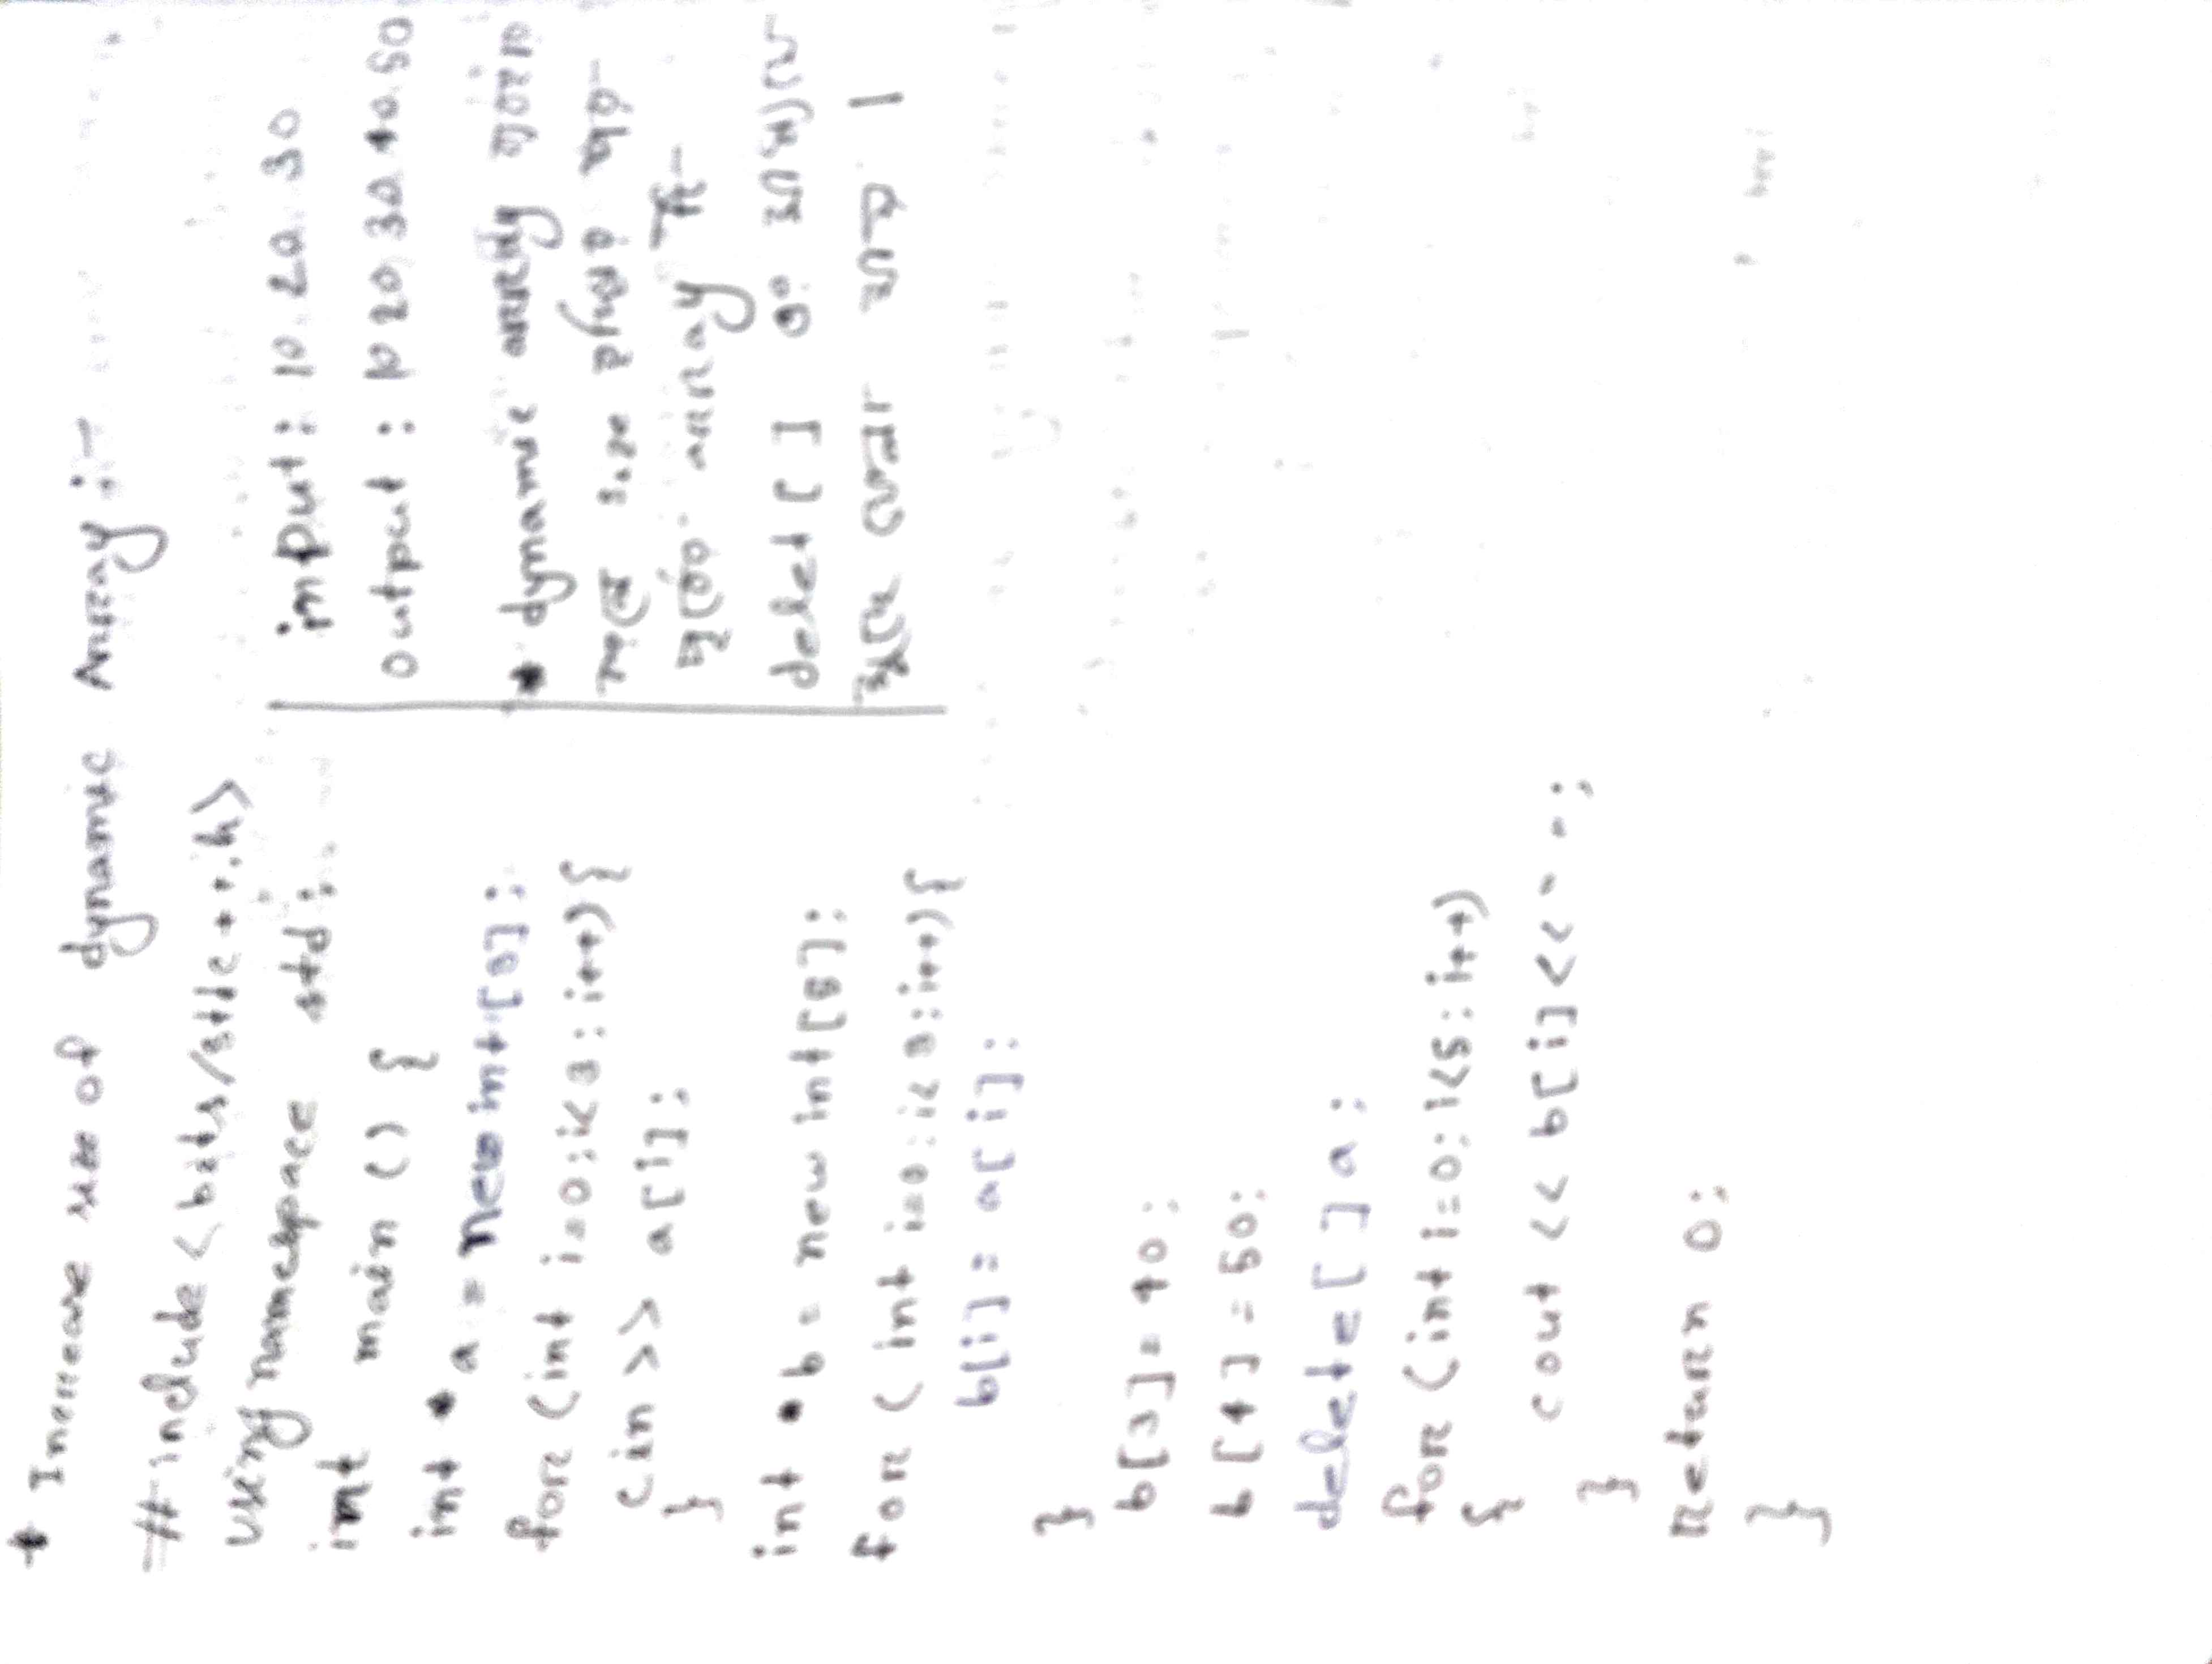 * Increase size of dynamic Array :-
#include <bits/stdc++.h>
using namespace std;
int main () {
int * a = new int [3];
for (int i=0; i<3; i++) {
cin >> a[i];
}
int * b = new int [5];
for ( int i=0; i<3; i++) {
b[i] = a[i];
}
b[3] = 40;
b[4] = 50;
delete [ ] a;
for (int i=0; i<5; i++)
{
cout << b[i] << " ";
}
return 0;
}
input : 10 20 30
output : 10 20 30 40 50
* dynamic array
size
array টি
delet [ ] এর
ফেলা যায় ।